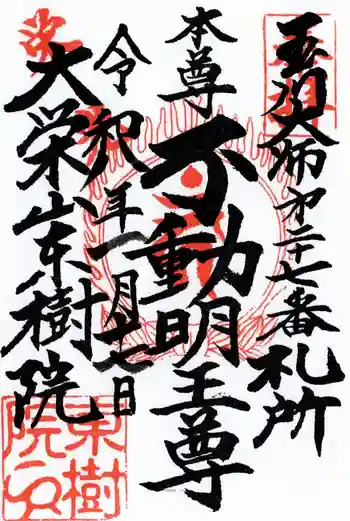 玉川大師第二十七番札所
本尊
不動明王尊
令和 年一月十一日
大栄山東樹院
東樹
院